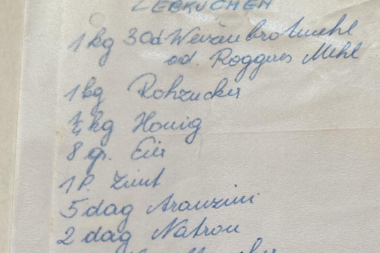 LEBKUCHEN
1 kg 30d Weizenbrotmehl
od. Roggnes Mehl
1 kg Rohzucker
kg Honig
8 gr. Eier
1 P. Zimt
5 dag Aranzini
2 dag Natron